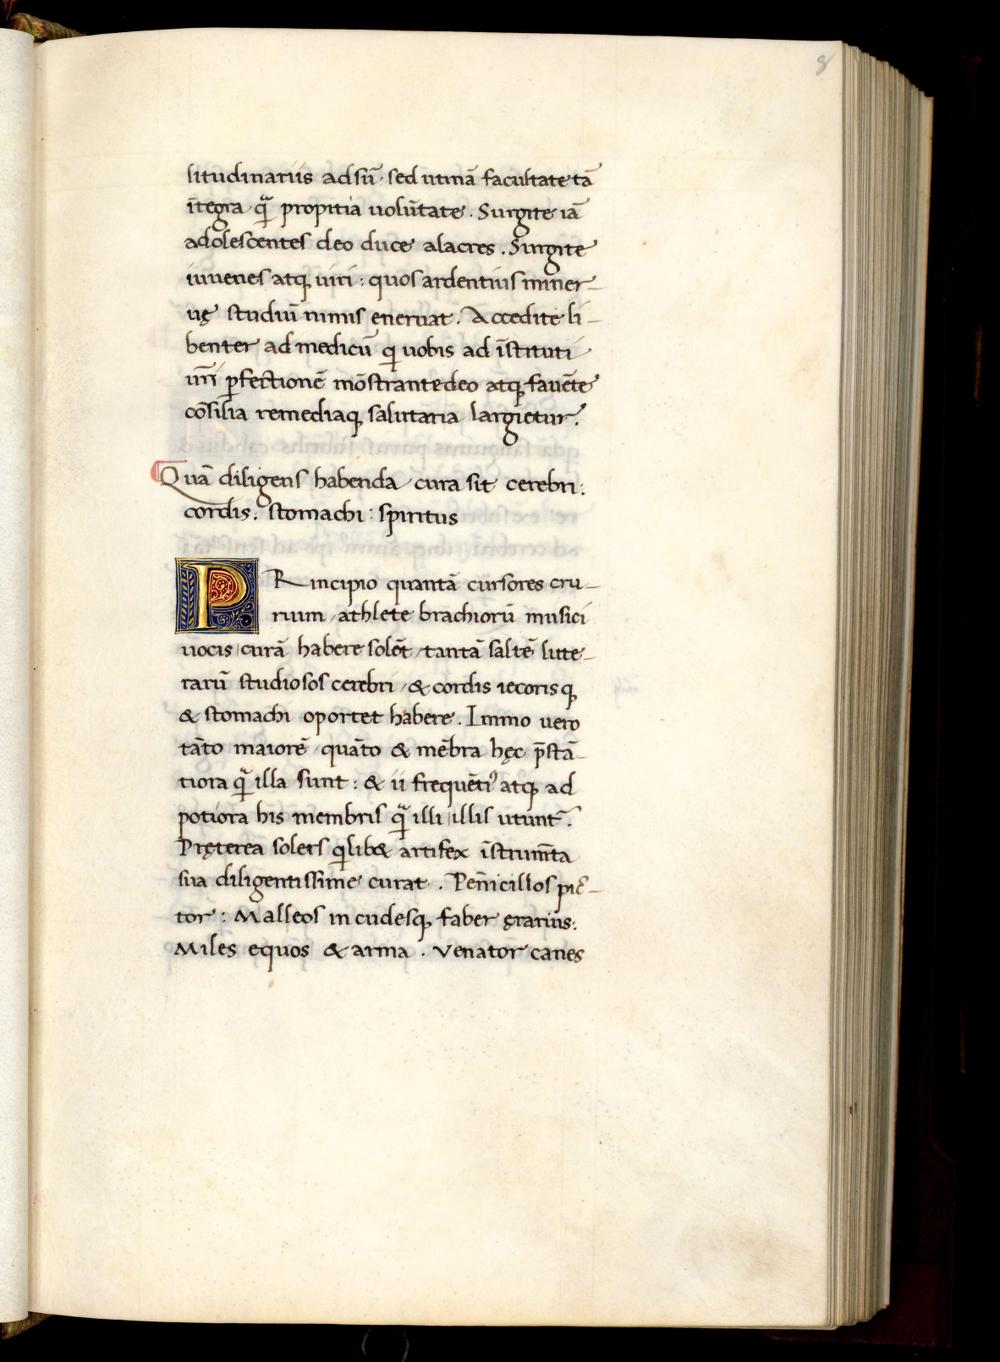 8
litudinariis adsū· sed utinā facultate tā
ītegra q̄ propitia uolūtate. Surgite iā
adolescentes deo duce alacres. Surgite
iuuenes atq̨ uiri: quos ardentius miner-
uę studiū nimis eneruat. Accedite li-
benter ad medicū q uobis ad īstituti
ur̄i ꝑfectionē mōstrante deo atq̨ fauēte
cōsilia remediaq̨ salutaria largietur.
Quā diligens habenda cura sit cerebri:
cordis: stomachi: spiritus
PRincipio quantā cursores cru-
rium / athlete brachiorū musici
uocis / curā habere solēt / tantā saltē litte-
rarū studiosos cerebri / & cordis iecoris q̨
& stomachi oportet habere. Immo uero
tāto maiorē quāto & mēbra hęc p̄stā-
tiora q̄ illa sunt: & ii frequētiꝰ atq̨ ad
potiora his membris q̄ illi / illis utunt̄.
Pręterea solers qlib& artifex īstrum̄ta
sua diligentissime curat. Penicillos pic-
tor: Malleos incudesq̨ faber ęrarius:
Miles equos & arma. Venator canes